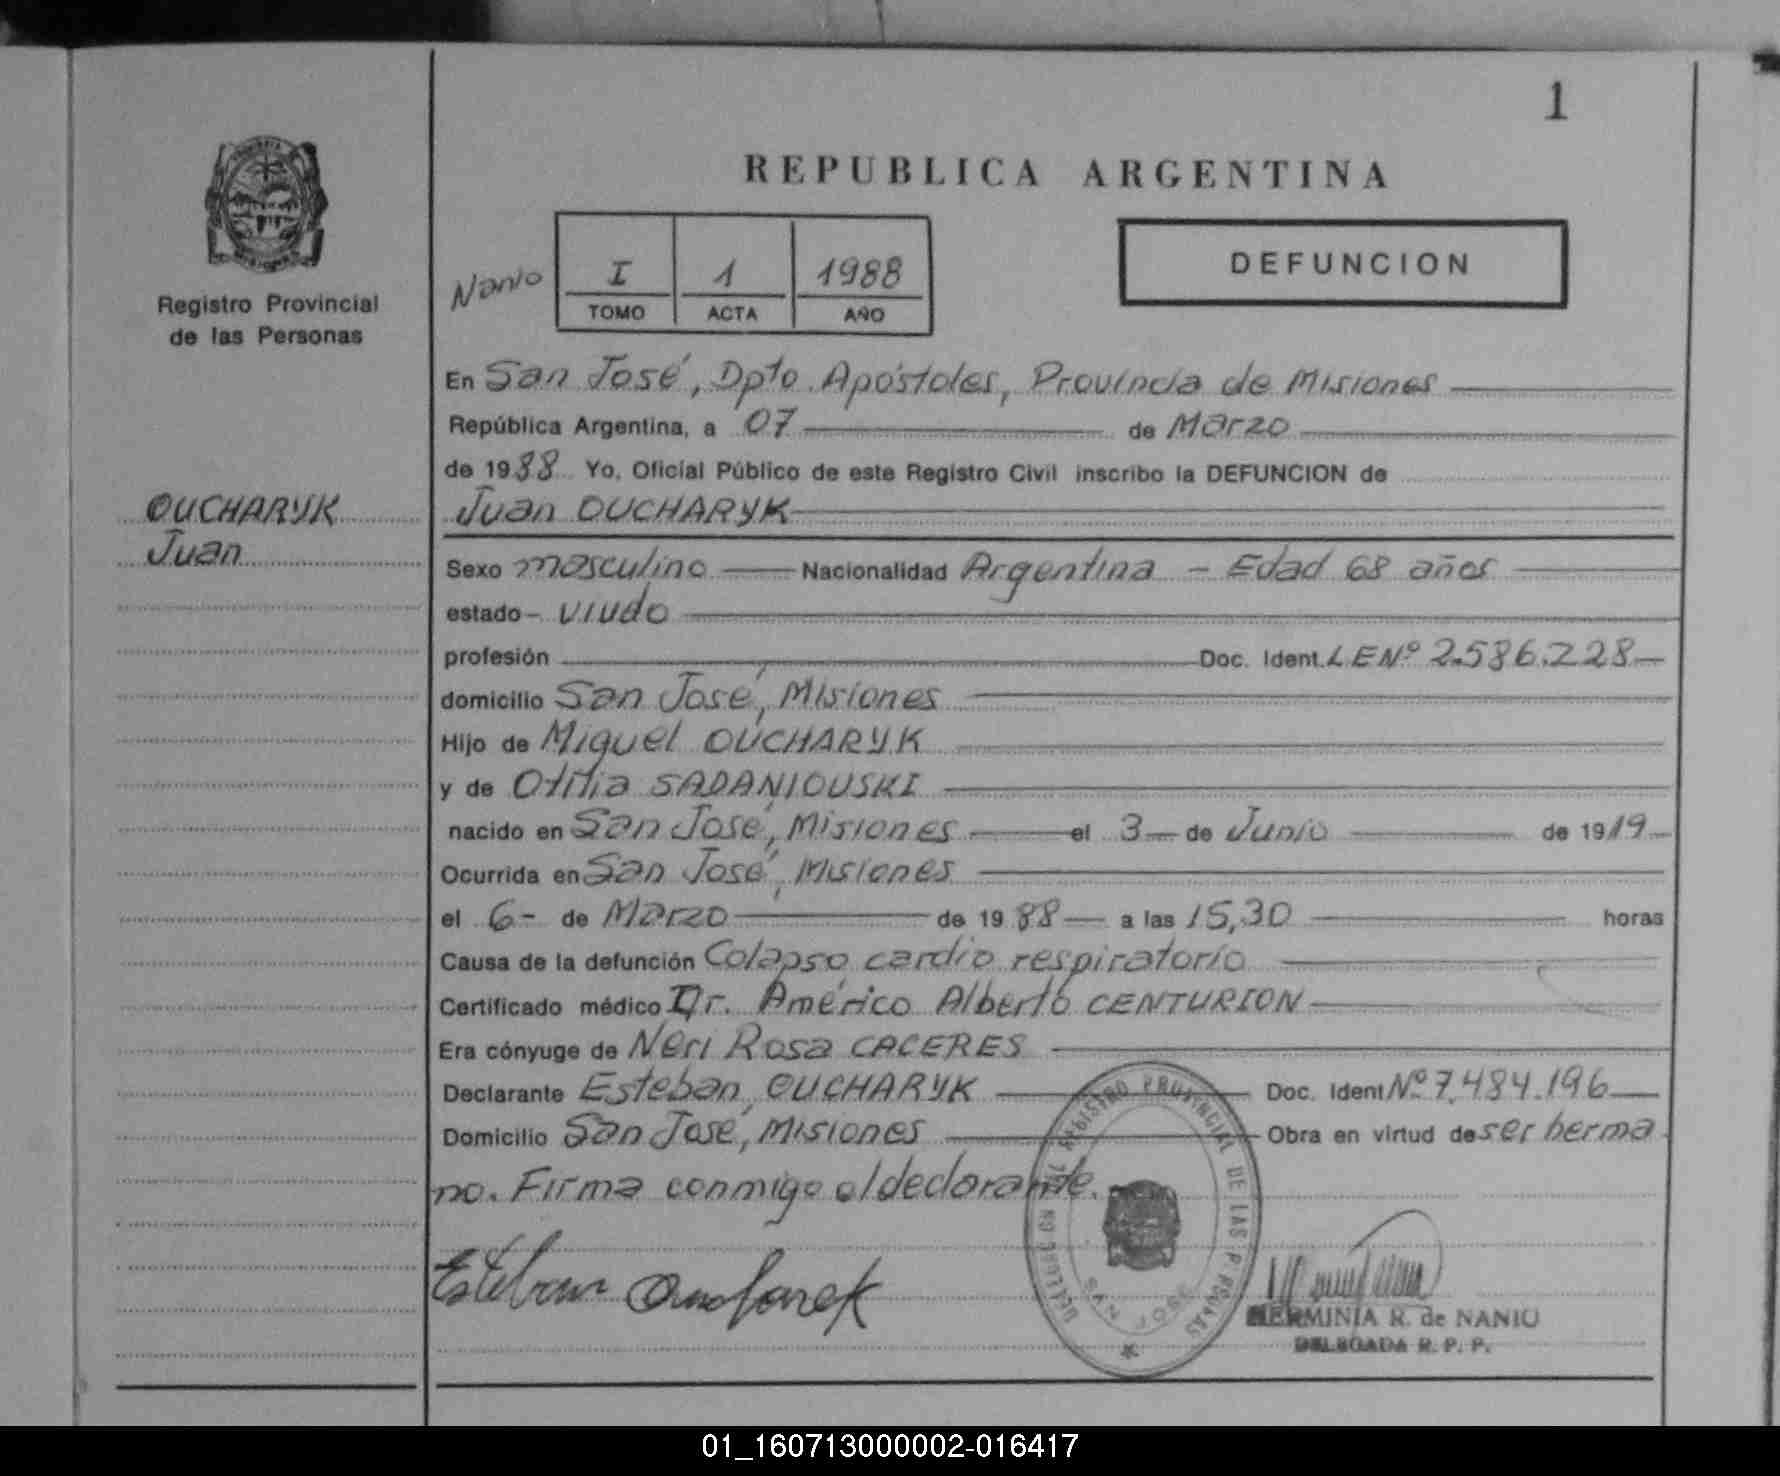 1
REPUBLICA ARGENTINA
Registro Provincial
de las Personas
Nanio
I 1 1988
TOMO ACTA AÑO
DEFUNCION
En San José, Dpto. Apóstoles, Provincia de Misiones
República Argentina, a 07 de Marzo
de 1988 Yo, Oficial Público de este Registro Civil inscribo la DEFUNCION de
OUCHARYK
Juan
Juan OUCHARYK
Sexo masculino Nacionalidad Argentina - Edad 68 años
estado - viudo
profesión Doc. Ident. LE Nº 2.586.228
domicilio San José, Misiones
Hijo de Miguel OUCHARYK
y de Otilia SADANIOUSKI
nacido en San José, Misiones el 3 de Junio de 1919
Ocurrida en San José, Misiones
el 6 - de Marzo de 1988 a las 15,30 horas
Causa de la defunción Colapso cardio respiratorio
Certificado médico Dr. Américo Alberto CENTURION
Era cónyuge de Neri Rosa CACERES
Declarante Esteban OUCHARYK Doc. Ident Nº 7.484.196
Domicilio San José, Misiones Obra en virtud de ser herma
no. Firma conmigo el declarante.
Esteban
DELEGACION DE REGISTRO PROVINCIAL DE LAS PERSONAS
SAN JOSE
HERMINIA R. de NANIO
DELEGADA R. P. P.
01_160713000002-016417